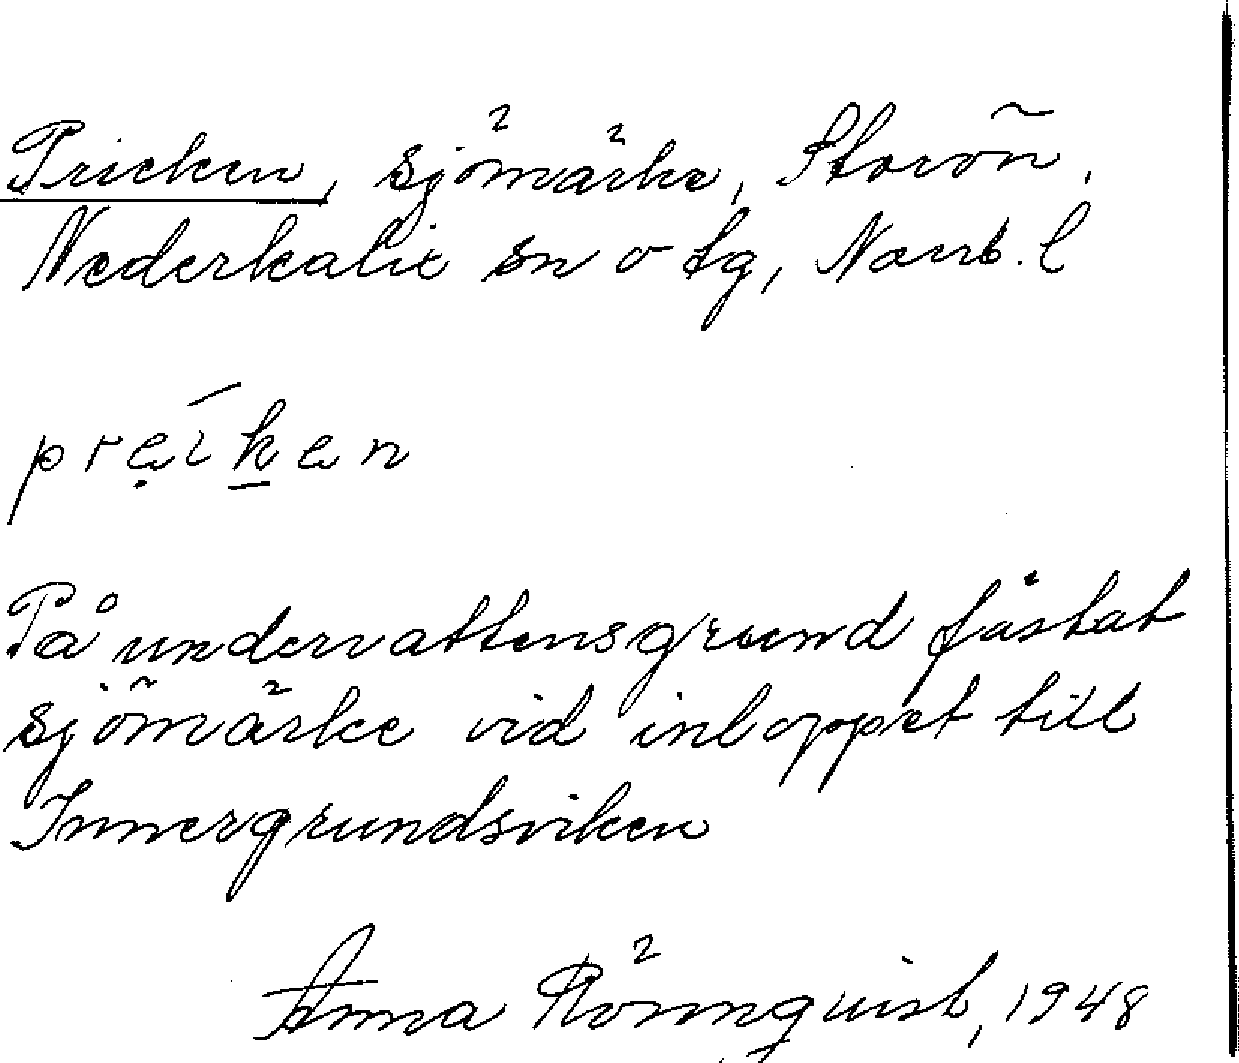 Pricken, sjömärke, Storön,
Nederkalix sn o tg, Norrb. l
preiken
På undervattensgrund fästat
sjömärke vid inloppet till
Innergrundsviken
Anna Rönnquist, 1948